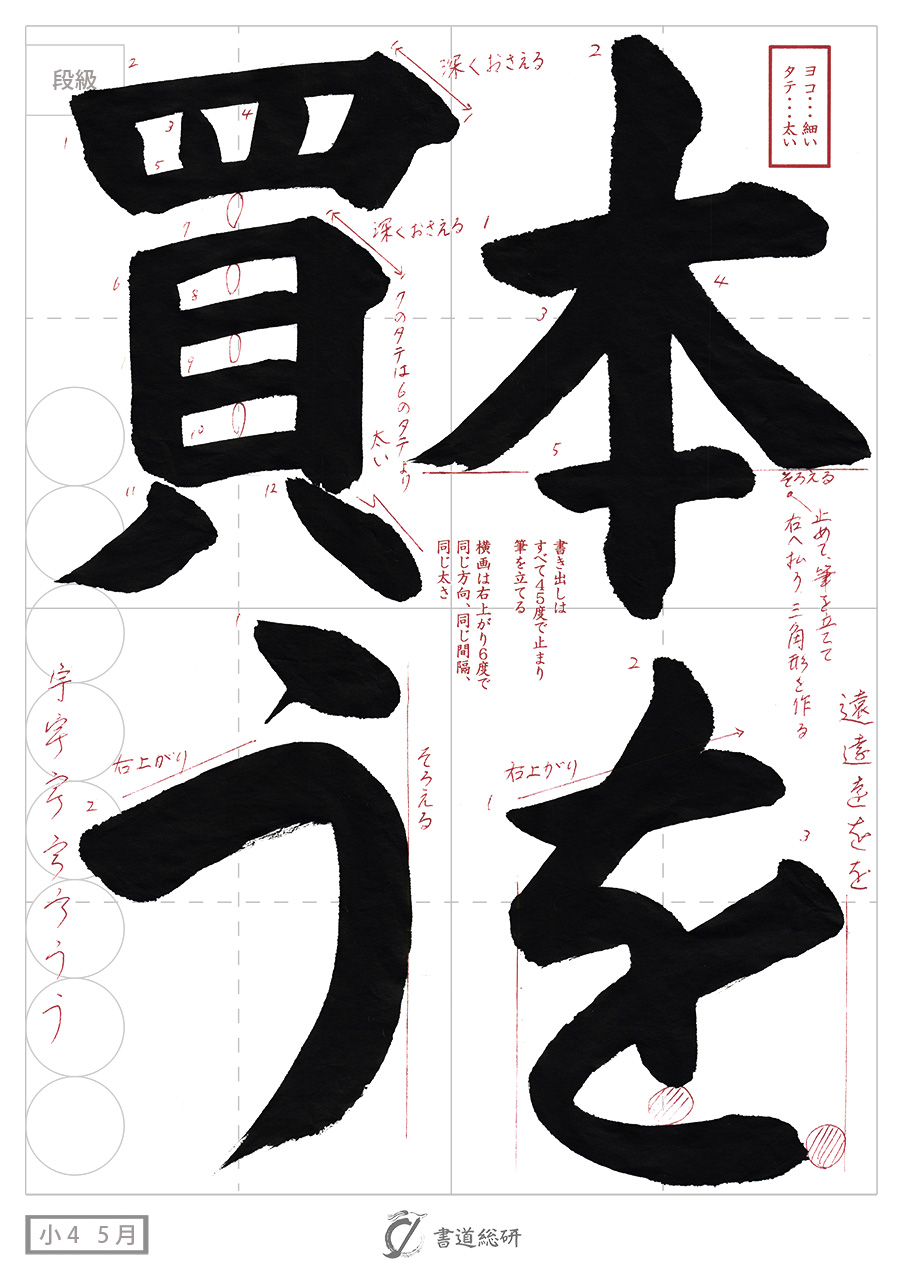 本を
買う
段級
ヨコ・・・細い
タテ・・・太い
2
深くおさえる
1
3
4
5
7
深くおさえる
6
8
9
10
7のタテは6のタテより
太い
11
12
2
1
3
4
5
そろえる
止めて、筆を立てて
右へ払う 三角形を作る
書き出しは
すべて45度で止まり
筆を立てる
横画は右上がり6度で
同じ方向、同じ間隔、
同じ太さ
2
右上がり
1
3
遠遠をを
1
右上がり
2
そろえる
宇宇
うう
小4 5月
書道総研